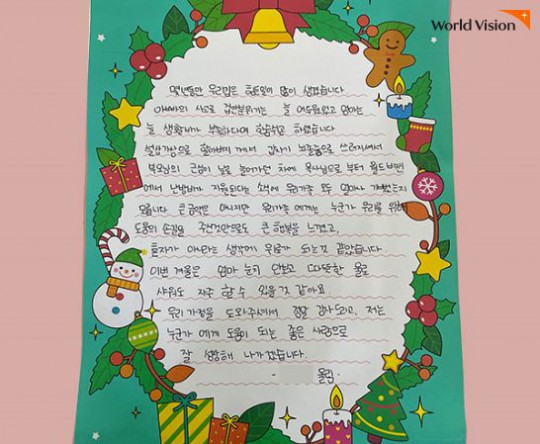 World Vision
몇년동안 우리집은 힘든일이 많이 생겼습니다
아빠의 사고로 집안분위기는 늘 어두워졌고 엄마는
늘 생활비가 부족하다며 한숨쉬고 하셨습니다
설상가상으로 할아버지 께서 갑자기 뇌졸중으로 쓰러지셔서
부모님의 근심이 날로 늘어가던 차에 목사님으로 부터 월드비전
에서 난방비가 지원된다는 소식에 우리가족 모두 얼마나 기뻤는지
모릅니다 큰 금액은 아니지만 우리가족 에게는 누군가 우리를 위해
도움의 손길을 주신것만으로도 큰 행복을 느꼈고,
혼자가 아니라는 생각에 위로가 되는것 같았습니다
이번 겨울은 엄마 눈치 안보고 따뜻한 물로
샤워도 자주 할 수 있을 것 같아요
우리 가정을 도와주셔서 정말 감사드리고, 저는
누군가 에게 도움이 되는 좋은 사람으로
잘 성장해 나가겠습니다
- 올림 -